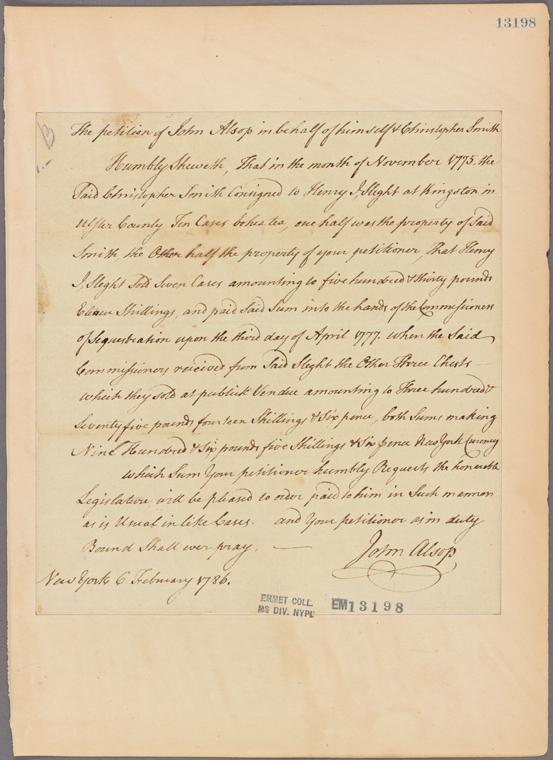 13198
B
The petition of John Alsop in behalf of himself & Christopher Smith
Humbly Sheweth, That in the month of November 1775 the
Said Christopher Smith Consigned to Henry J. Sleght at Kingston in
Ulster County Ten Cases bohea tea, one half was the property of Said
Smith, the Other half the property of your petitioner, That Henry
J. Sleght Sold Seven Cases amounting to five hundred & thirty pounds
Eleven Shillings, and paid Said Sum into the hands of the Commissioners
of Sequestration upon the third day of April 1777. when the Said
Commissioners received from Said Sleght the Other Three Chests
which they sold at publick Vendue amounting to Three hundred &
Seventy five pounds fourteen Shillings & Six pence, both Sums making
Nine Hundred & Six pounds five Shillings & Six pence New York Currency
which Sum Your petitioner humbly Requests the honorable
Legislature will be pleased to order paid to him in Such manner
as is Usual in like Cases. and Your petitioner as in duty
Bound Shall ever pray,
John Alsop
New York 6 February 1786.
EMMET COLL.
MS DIV. NYPL
EM13198